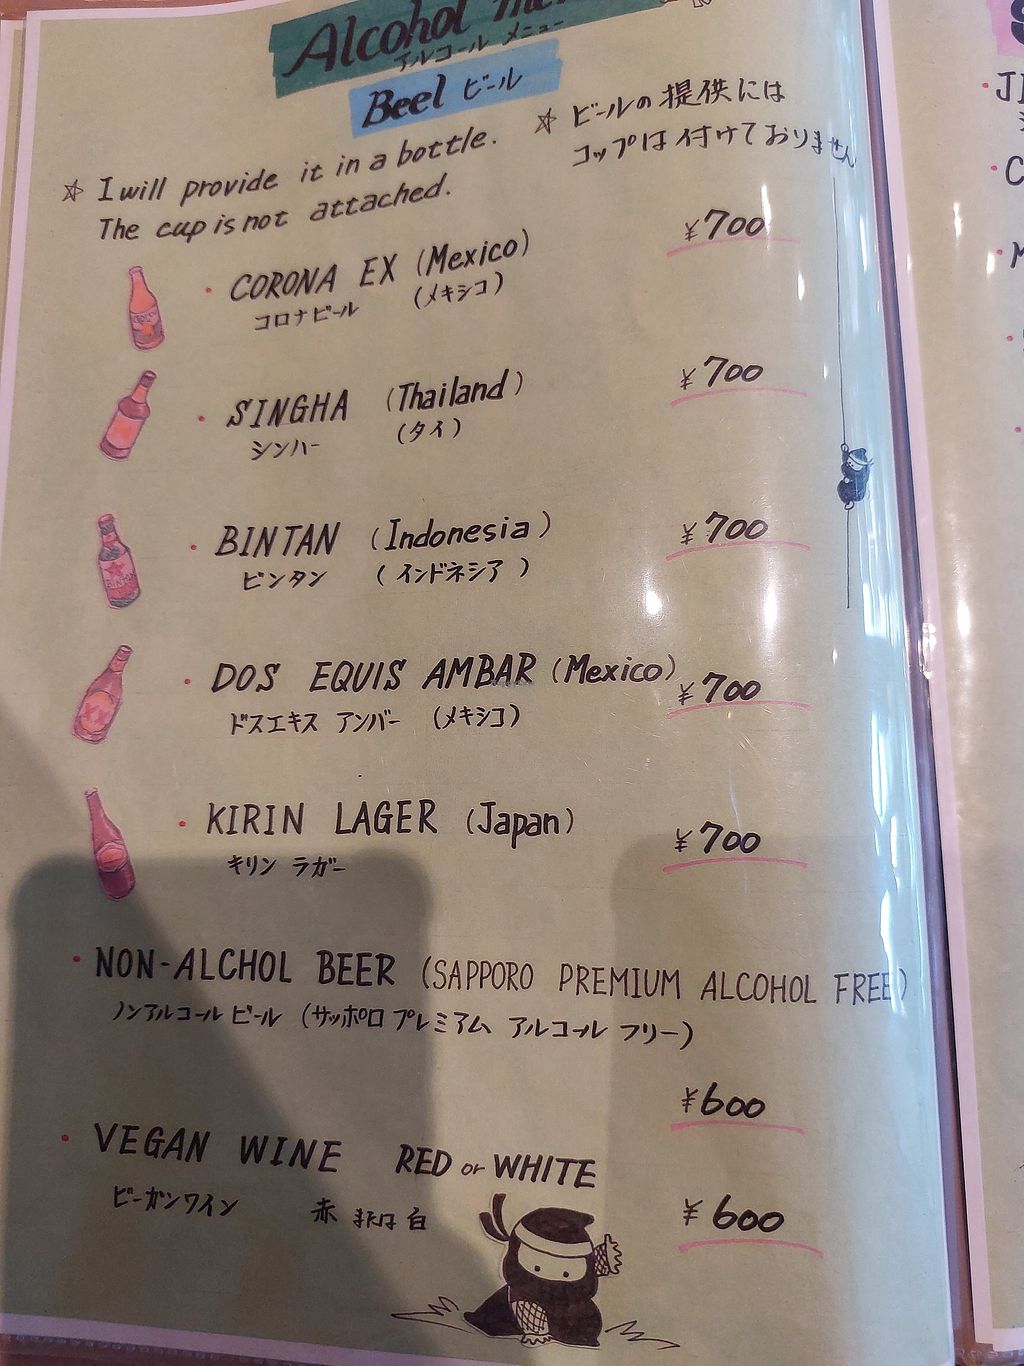 Alcohol
アルコール メニュー
Beel ビール
☆ I will provide it in a bottle.
The cup is not attached.
☆ ビールの提供には
コップは付けておりません
・CORONA EX (Mexico) ¥700
コロナビール (メキシコ)
・SINGHA (Thailand) ¥700
シンハー (タイ)
・BINTAN (Indonesia) ¥700
ビンタン (インドネシア)
・DOS EQUIS AMBAR (Mexico) ¥700
ドスエキス アンバー (メキシコ)
・KIRIN LAGER (Japan) ¥700
キリン ラガー
・NON-ALCHOL BEER (SAPPORO PREMIUM ALCOHOL FREE)
ノンアルコール ビール (サッポロ プレミアム アルコール フリー)
¥600
・VEGAN WINE RED or WHITE
ビーガンワイン 赤 または 白
¥600